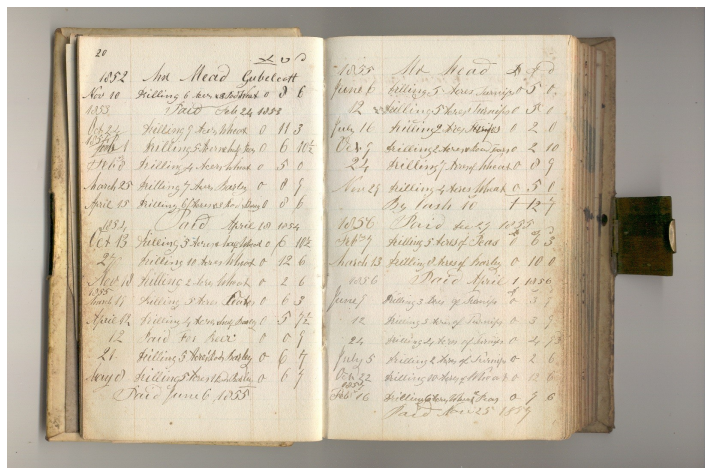 20
£ s d
1852 Mr Mead Gubelcott
Nov 10 Drilling 6 Acres Wheat 0 8 6
1853 Paid Feb 24 1853
Oct 24 Drilling 9 Acres Wheat 0 11 3
1854
Drilling 5 Acres 0 6 10½
Feb 8 Drilling 4 Acers Wheat 0 5 0
March 25 Drilling 7 Acres Barley 0 8 9
April 15 Drilling 6 Acres 0 8 6
1854 Paid April 28 1854
Oct 13 Drilling 5 Acres Wheat 0 6 10½
24 Drilling 10 Acres Wheat 0 12 6
Nov 18 Drilling 2 Acres Wheat 0 2 6
1855
March Drilling 5 Acres Peas 0 6 3
April 12 Drilling 4 Acres Barley 0 5 7½
12 Paid for 0 0 9
21 Drilling 5 Acres Barley 0 6 7
May 8 Drilling 5 Acres Barley 0 6 7
Paid June 6 1855
1855 Mr Mead £ s d
June 6 Drilling 5 Acres Turnips 0 5 0
12 Drilling 5 Acres Turnips 0 5 0
July 16 Drilling 2 Acres Turnips 0 2 0
Oct 9 Drilling 2 Acres 0 2 10
24 Drilling 7 Acres Wheat 0 8 9
Nov 29 Drilling 4 Acres Wheat 0 5 0
By Cash to 1 12 7
1856 Paid 1855
Feb Drilling 5 Acres of Peas 0 6 3
March 13 Drilling 8 Acres of Barley 0 10 0
1856 Paid April 1 1856
June Drilling 3 Acres of Turnips 0 3 9
12 Drilling 3 Acres of Turnips 0 3 9
24 Drilling 4 Acres of Turnips 0 4
July 5 Drilling 2 Acres of Turnips 0 2 6
Oct 22 Drilling 10 Acres of Wheat 0 12 6
1857
Feb 16 Drilling 6 Acres Peas 0 7 6
Paid 25 1857